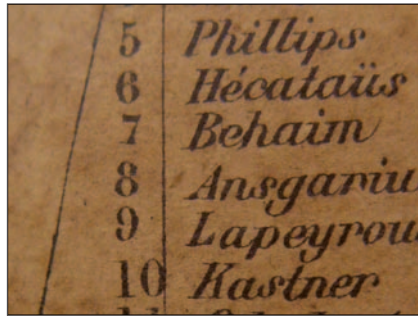 5 Phillips
6 Hécataüs
7 Behaim
8 Ansgariu
9 Lapeyrou
10 Kastner